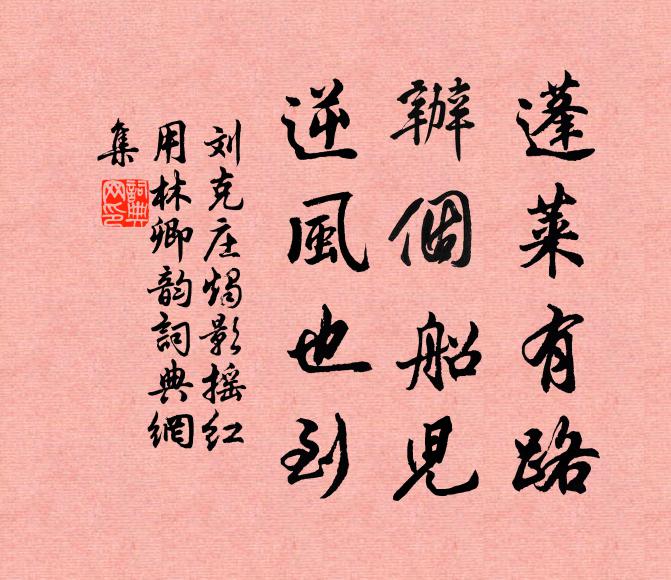 蓬萊有路
辦個船兒
逆風也到
刘克庄燭影摇红
用林卿韵詞典網
集
詞典网印